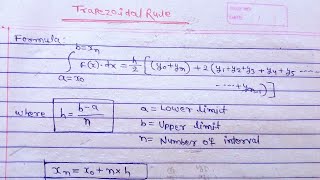 Trapezoidal Rule
Formula:
b=xn
∫ f(x)·dx = h/2 [(y0+yn) + 2(y1+y2+y3+y4+y5 ......
a=x0
......+yn-1)]
where h = b-a/n a = Lower limit
b = Upper limit
n = Number of interval
xn = x0 + n×h